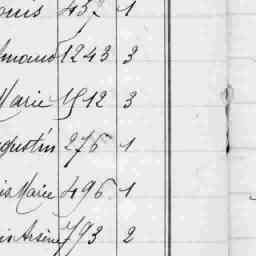 ouis 437 1
mand 1243 3
Marie 1512 3
gustin 276 1
is Marie 496 1
is Arsène 793 2